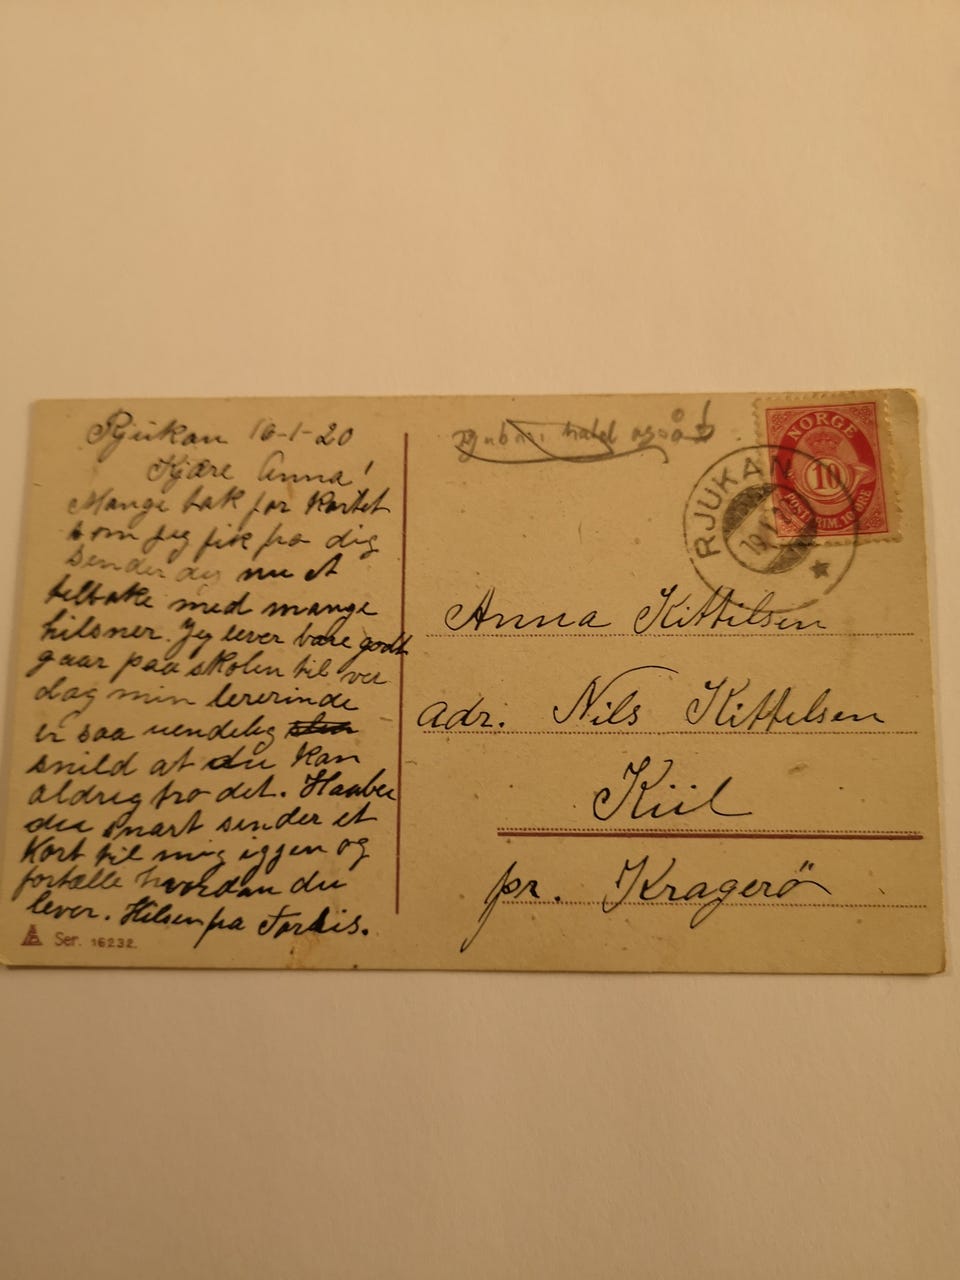 Rjukan 16-1-20
Kjære Anna!
Mange tak for Kortet
som jeg fik fra dig
sender dig nu et
tilbake med mange
hilsner. Jeg lever bare godt
gaar paa skolen til ver
dag min lererinde
er saa uendelig
snild at du kan
aldrig tro det. Haaber
du snart sender et
Kort til mig iggjen og
fortælle hvordan du
lever. Hilsen fra
Ser. 16232.
NORGE
10
POSTFRIM. 10 ØRE
RJUKAN
19
Anna Kittilsen
adr. Nils Kittelsen
Kiil
pr. Kragerö